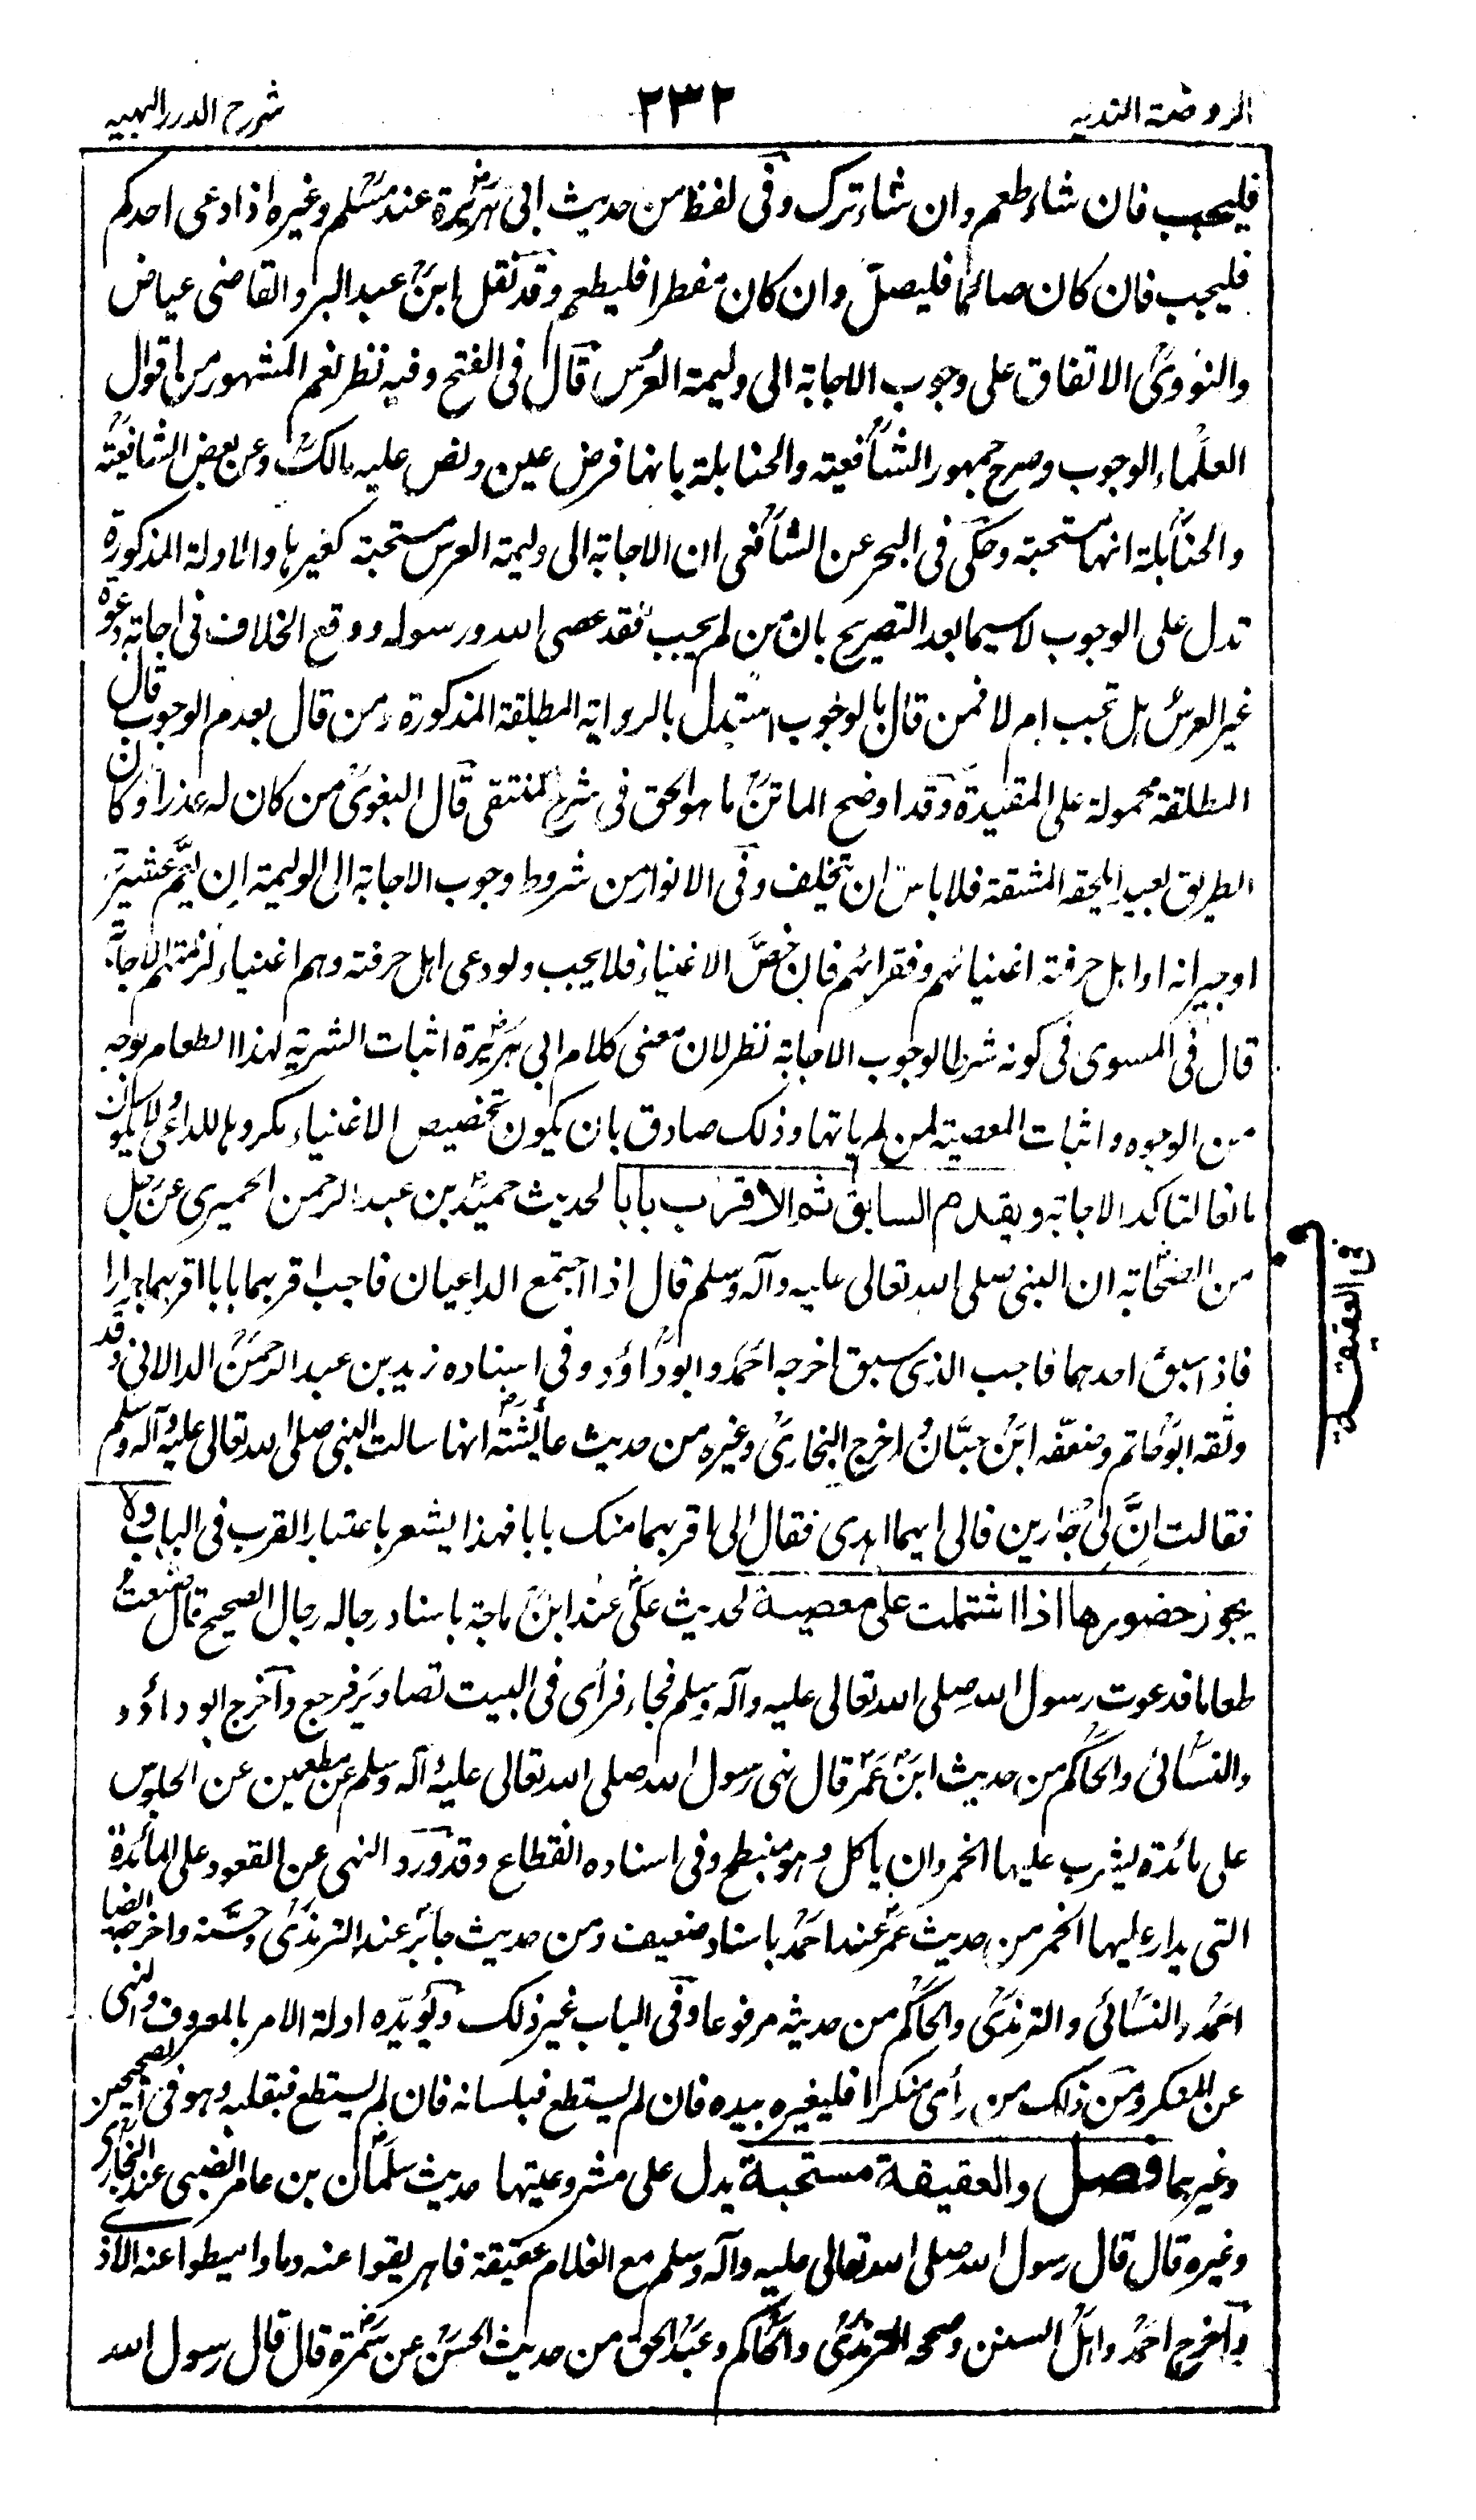 الروضة الندية
٢٣٢
شرح الدرر البهية
فليجب فان شاء طعم وان شاء ترك وفى لفظ من حديث ابى هريرة عند مسلم وغيره اذا دعى احدكم
فليجب فان كان صائما فليصل وان كان مفطرا فليطعم وقد نقل ابن عبد البر والقاضى عياض
والنووى الاتفاق على وجوب الاجابة الى وليمة العرس قال فى الفتح وفيه نظر نعم المشهور من اقوال
العلماء الوجوب وصرح جمهور الشافعية والحنابلة بانها فرض عين ونص عليه مالك وعن بعض الشافعية
والحنابلة انها مستحبة وحكى فى البحر عن الشافعى ان الاجابة الى وليمة العرس مستحبة كغيرها والادلة المذكورة
تدل على الوجوب لا سيما بعد التصريح بان من لم يجب فقد عصى الله ورسوله ووقع الخلاف فى اجابة دعوة
غير العرس هل تجب ام لا فمن قال بالوجوب استدل بالرواية المطلقة المذكورة ومن قال بعدم الوجوب قال
المطلقة محمولة على المقيدة وقد اوضح الماتن ما هو الحق فى شرح المنتقى قال البغوى من كان له عذر او كان
الطريق بعيدا يلحقه المشقة فلا باس ان يتخلف وفى الانوار من شروط وجوب الاجابة الى الوليمة ان يعم عشيرته
او جيرانه او اهل حرفته اغنيائهم وفقرائهم فان خص الاغنياء فلا يجب ولو دعى اهل حرفته وهم اغنياء لزمتهم الاجابة
قال فى المسوى فى كونه شرطا لوجوب الاجابة نظر لان معنى كلام ابى هريرة اثبات الشرية لهذا الطعام بوجه
من الوجوه واثبات المعصية لمن لم ياتها وذلك صادق بان يكون تخصيص الاغنياء مكروها للداعى ولا يكون
مانعا لتاكد الاجابة ويقدم السابق ثم الاقرب بابا لحديث حميد بن عبد الرحمن الحميرى عن رجل
من الصحابة ان النبى صلى الله تعالى عليه وآله وسلم قال اذا اجتمع الداعيان فاجب اقربهما بابا اقربهما جوارا
فاذا سبق احدهما فاجب الذى سبق اخرجه احمد وابو داؤد وفى اسناده زيد بن عبد الرحمن الدالانى وقد
وثقه ابو حاتم وضعفه ابن حبان اخرج البخارى وغيره من حديث عائشة انها سالت النبى صلى الله تعالى عليه وآله وسلم
فقالت ان لى جارين فالى ايهما اهدى فقال الى اقربهما منك بابا فهذا يشعر باعتبار القرب فى الباب ولا
يجوز حضورها اذا اشتملت على معصية لحديث على عند ابن ماجة باسناد رجاله رجال الصحيح قال صنعت
طعاما فدعوت رسول الله صلى الله تعالى عليه وآله وسلم فجاء فرأى فى البيت تصاوير فرجع وآخرج ابو داؤد
والنسائى والحاكم من حديث ابن عمر قال نهى رسول الله صلى الله تعالى عليه وآله وسلم عن مطعمين عن الجلوس
على مائدة يشرب عليها الخمر وان ياكل وهو منبطح وفى اسناده انقطاع وقد ورد النهى عن القعود على المائدة
التى يدار عليها الخمر من حديث عمر عند احمد باسناد ضعيف ومن حديث جابر عند الترمذى وحسنه واخرجه ايضا
احمد والنسائى والترمذى والحاكم من حديثه مرفوعا وفى الباب غير ذلك ويؤيده ادلة الامر بالمعروف والنهى
عن المنكر ومن ذلك من رأى منكرا فليغيره بيده فان لم يستطع فبلسانه فان لم يستطع فبقلبه وهو فى الصحيحين
وغيرهما فصل والعقيقة مستحبة يدل على مشروعيتها حديث سلمان بن عامر الضبى عند البخارى
وغيره قال قال رسول الله صلى الله تعالى عليه وآله وسلم مع الغلام عقيقة فاهريقوا عنه دما واميطوا عنه الاذى
وآخرج احمد واهل السنن وصححه الترمذى والحاكم وعبد الحق من حديث الحسن عن سمرة قال قال رسول الله
فى العقيقة